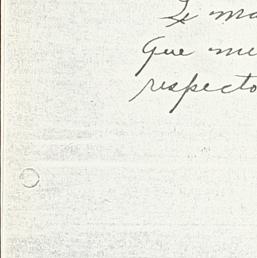 Le ma
que me
respecto